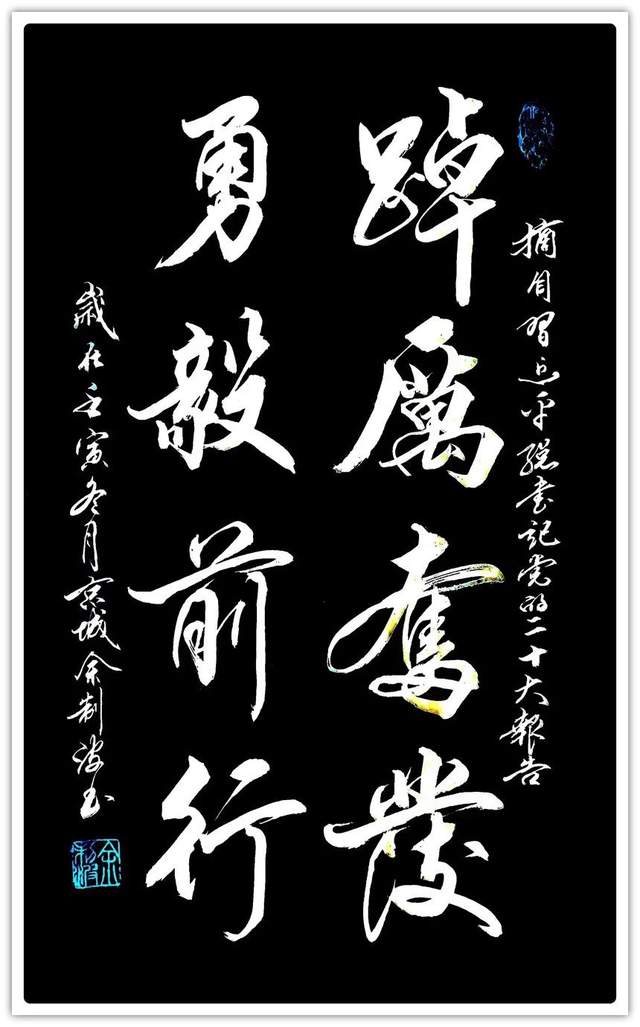 摘自習近平總書記党的二十大報告
踔厲奮發
勇毅前行
歲在壬寅冬月京城余制波书
余制波